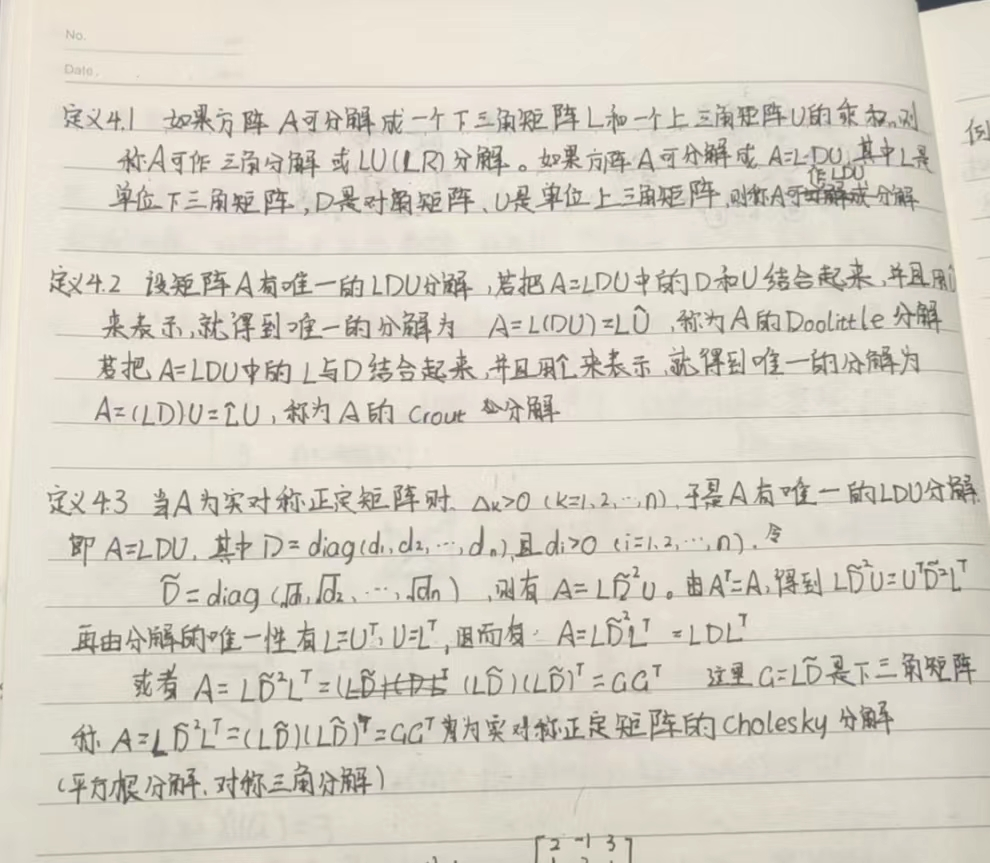 No.
Date.
定义4.1 如果方阵 A可分解成一个下三角矩阵L和一个上三角矩阵U的乘积,则
称A可作三角分解或LU(LR)分解。如果方阵A可分解成 A=LDU,其中L是
单位下三角矩阵,D是对角矩阵、U是单位上三角矩阵,则称A可作LDU分解
定义4.2 设矩阵A有唯一的LDU分解,若把A=LDU中的D和U结合起来,并且用Û
来表示,就得到唯一的分解为 A=L(DU)=LÛ ,称为A的Doolittle分解
若把A=LDU中的L与D结合起来,并且用L̂来表示,就得到唯一的分解为
A=(LD)U=L̂U,称为A的 Crout 分解
定义4.3 当A为实对称正定矩阵时, Δₖ>0 (k=1,2,…,n),于是A有唯一的LDU分解,
即 A=LDU,其中 D=diag(d₁,d₂,…,dₙ),且dᵢ>0 (i=1,2,…,n).令
D̃=diag(√d₁,√d₂,…,√dₙ) ,则有 A=LD̃²U。由Aᵀ=A,得到 LD̃²U=UᵀD̃²Lᵀ
再由分解的唯一性有L=Uᵀ,U=Lᵀ,因而有: A=LD̃²Lᵀ =LDLᵀ
或者 A=LD̃²Lᵀ=(LD̃)(LD̃)ᵀ=GGᵀ 这里 G=LD̃是下三角矩阵
称 A=LD̃²Lᵀ=(LD̃)(LD̃)ᵀ=GGᵀ为实对称正定矩阵的Cholesky分解
(平方根分解,对称三角分解)
2 -1 3